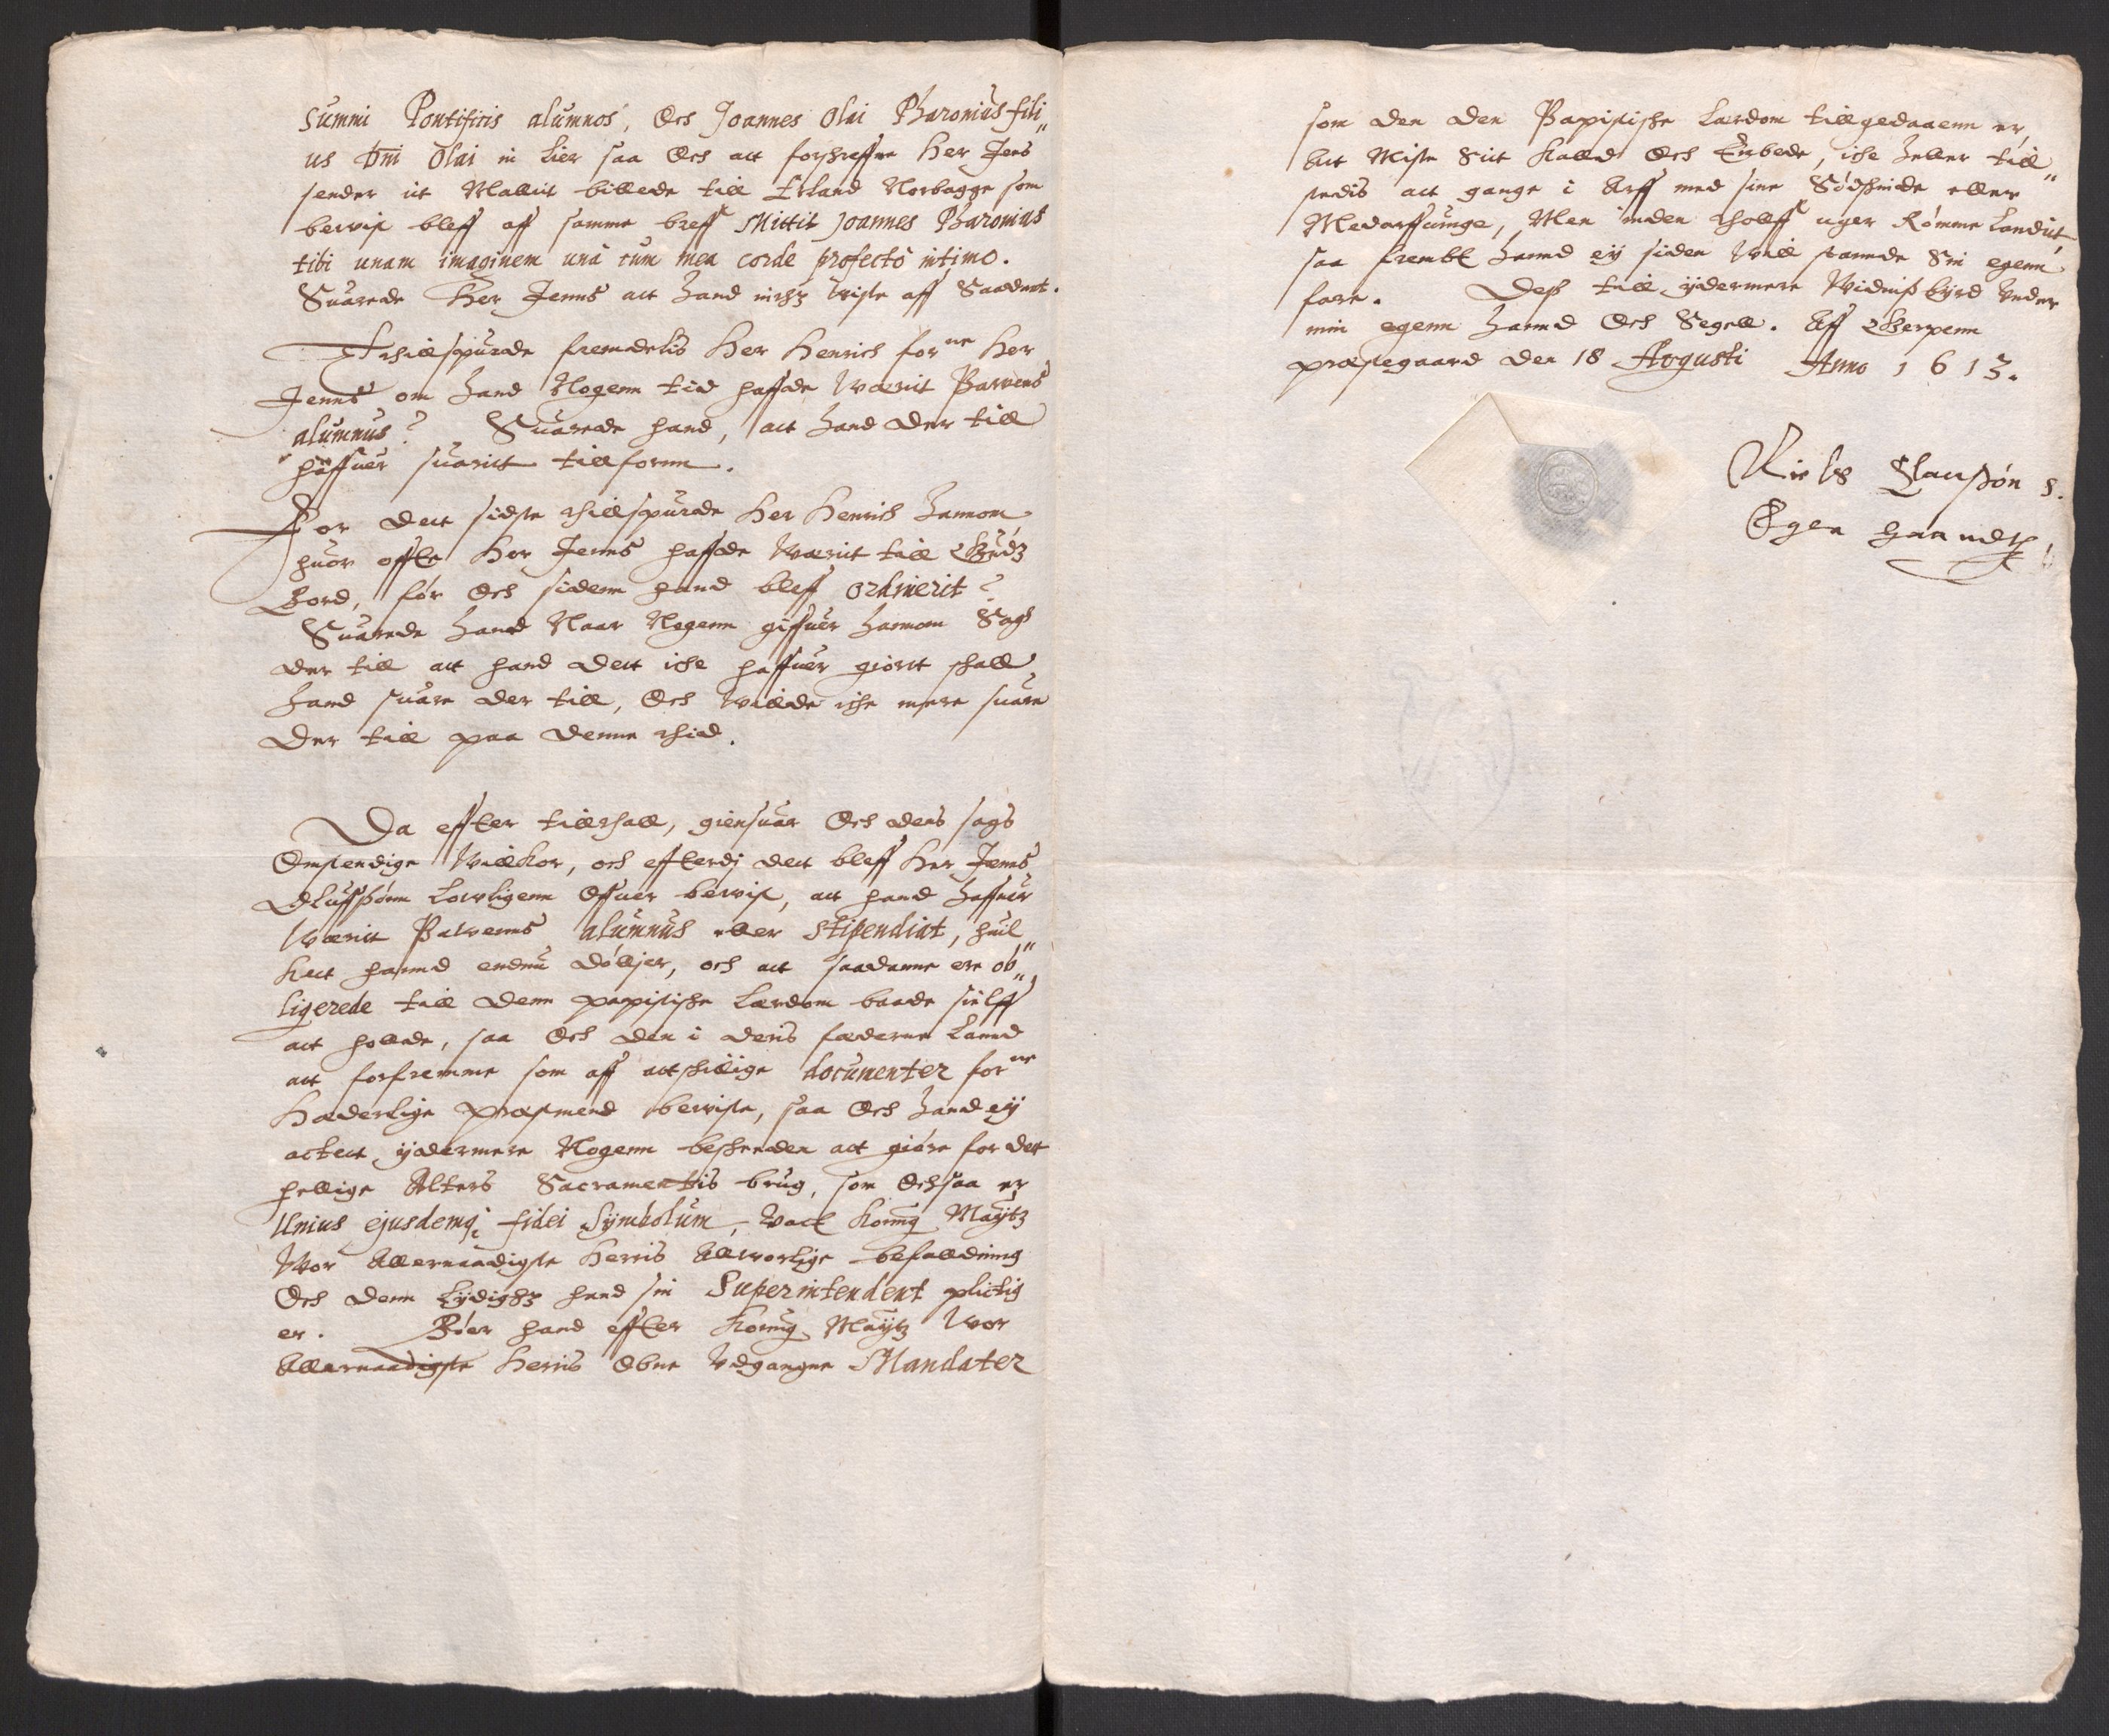 Summi Pontificis alumnos, Och Joannes Olai Pharonius fili„
us Dni Olai in Lier saa Och att forschreffne Her Jens
sender it Mallit billede till Erland Norbagge som
bevist bleff aff samme breff Mittit Joannes Pharonius
tibi unam imaginem unà cum mea corde profectò intimo.
Suarede Her Jenns att hand inthz viste aff Saadant.
Athillspurde fremdelis Her Henrich forne Her
Jenns om hand Nogenn tid haffde Værit Pavens
alumnus? Suarede hand, att hand der till
haffuer suarit tillforne.
For det sidste thillspurde Her Henrich hannom
huor offte Her Jenns haffde Værit till Gudz
Bord, før Och sidenn hand bleff ordinerit?
Suarede hand Naar Nogenn giffuer hannom Sagh
der till att hand dett iche haffuer giort schall
hand suare der till, Och Vilde iche mere suare
der till paa denne thid.
Da effter tillthall, giensuar Och dens sags
Omstendige Vilkor, och efterdj dett bleff Her Jenns
Oluffsønn Lovligenn Offuer bevist, att hand haffuer
Værit Pavenns alumnus eller stipendiat, huil„
ket hannd endnu døllger, och att saadanne ere ob„
ligerede till denn papistiske Lærdom baade sielff
att hollde, saa Och den i deris fæderne Lannd
att forfremme som aff attschillige documenter forne
Hæderlige præstmend beviste, saa Och hand ey
actett ydermere Nogenn beskeeden att giøre for dett
hellige Alters Sacramentis brug, som Ochsaa er
Unius ejusdemq; fidei Symbolum, Vaar Konng Maytz
Vor Allernaadigste Herris Allvorlige befalldning
Och denn Lydighz hand sin Superintendent plictig
er. Bøer hand effter Konng Maytz Vor
Allernaadigste Herris Obne Vdgangne Mandater
som den den Papistische Lærdom tillgedaaenn er,
Att Miste Sit Kalld Och Embede, iche heller till„
stedis att gange i Arff med sine Sødschinde eller
Medarffuinge, Men inden tholff uger Rømme Landit,
saa frembt hannd ey siden Vill stannde Sin egenn
fare. Dess till ydermere Vidnissbyrd Under
min egenn hannd Och Segell. Aff Gerpenn
præstegaard den 18 Avgusti Anno 1613.
Niels Claussøn S.
Egen haandt